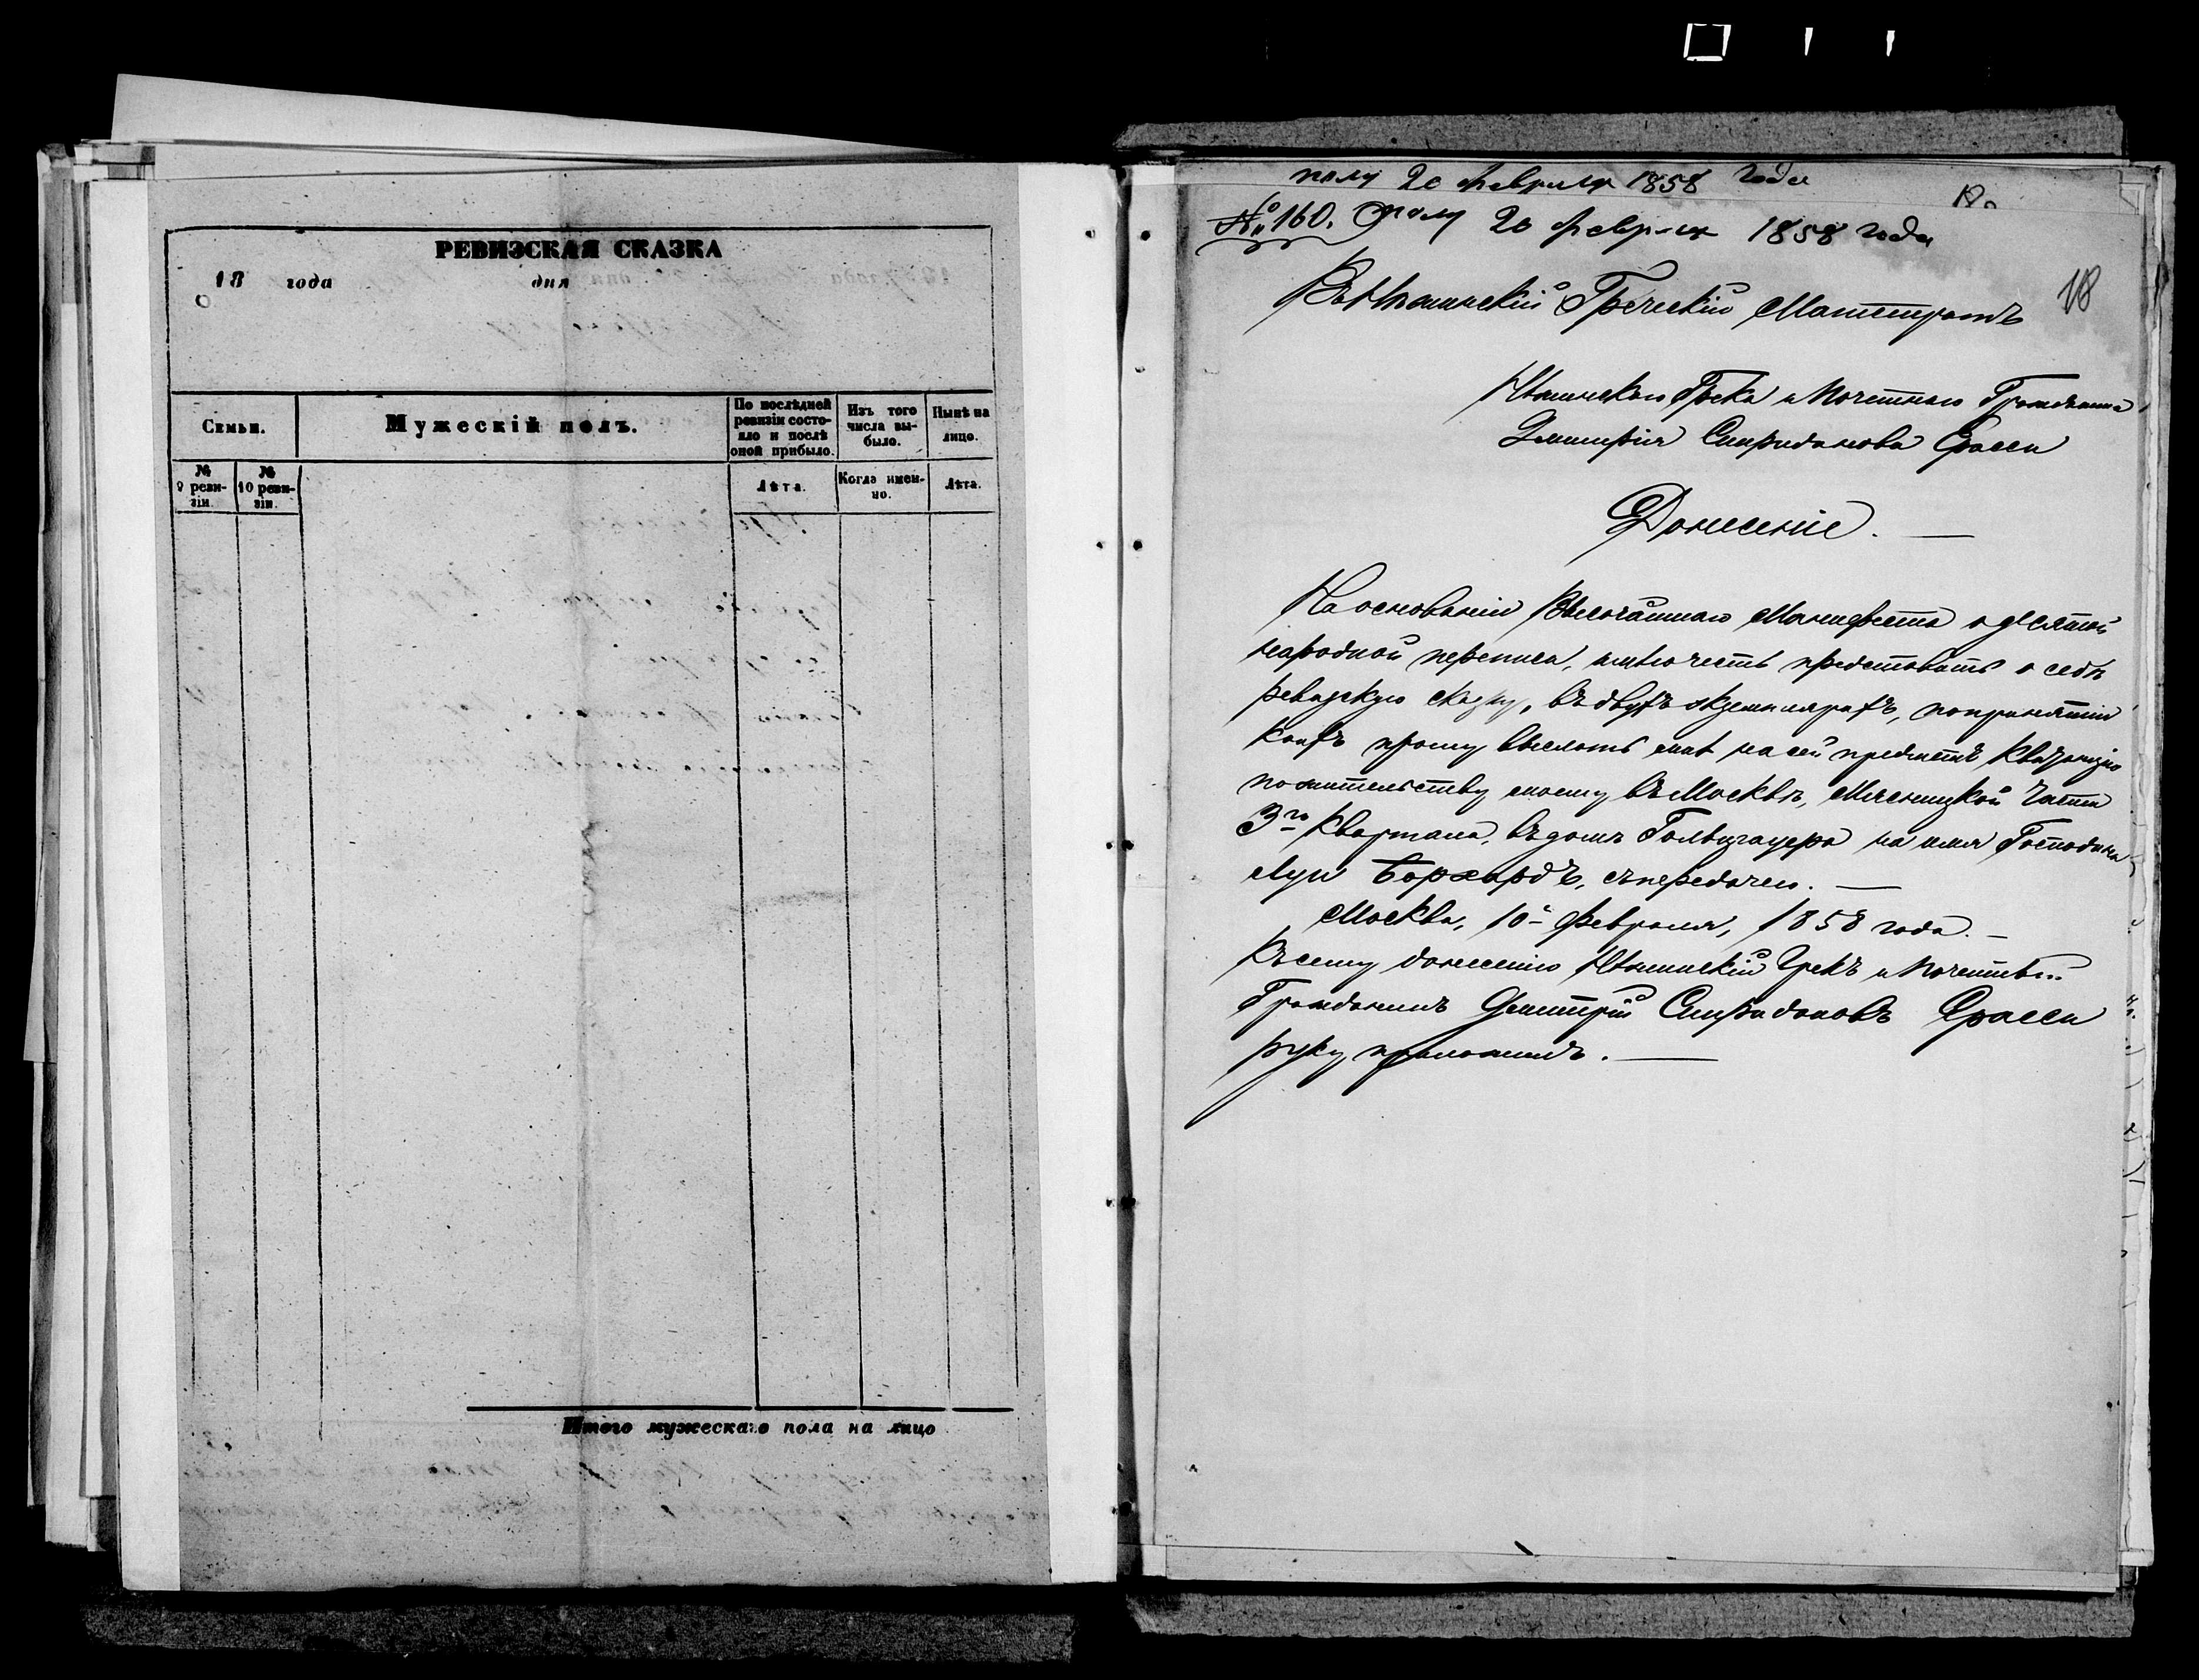 РЕВИЗСКАЯ СКАЗКА
18 года дня
Семьи.
Мужескій полъ.
По послѣдней ревизіи состояло и послѣ оной прибыло.
Изъ того числа выбыло.
Нынѣ на лицо.
№ 9 ревизіи.
№ 10 ревизіи.
Лѣта.
Когда именно.
Лѣта.
Итого мужескаго пола на лицо
полу 20 февраля 1858 года
№ 160. полу 20 февраля 1858 года
18
Въ Нѣжинскій Греческій Магистратъ
Нѣжинскаго Грека и Почетнаго Гражданина
Димитрія Спиридонова
Донесеніе.
На основаніи Высочайшаго Манифеста о десятой
народной переписи, имѣю честь представить о себѣ
ревизскую сказку, въ двухъ экземплярахъ, по принятіи
коихъ прошу выслать мнѣ на сей предметъ квитанцію
по жительству моему въ Москвѣ, Мясницкой Части
3го Квартала, въ домѣ на имя Господина
Луи Борхардъ, съ передачею.
Москва, 10 Февраля, 1858 года.
Къ сему донесенію Нѣжинскій Грекъ и Почетный
Гражданинъ Дмитрій Спиридоновъ
руку приложилъ.